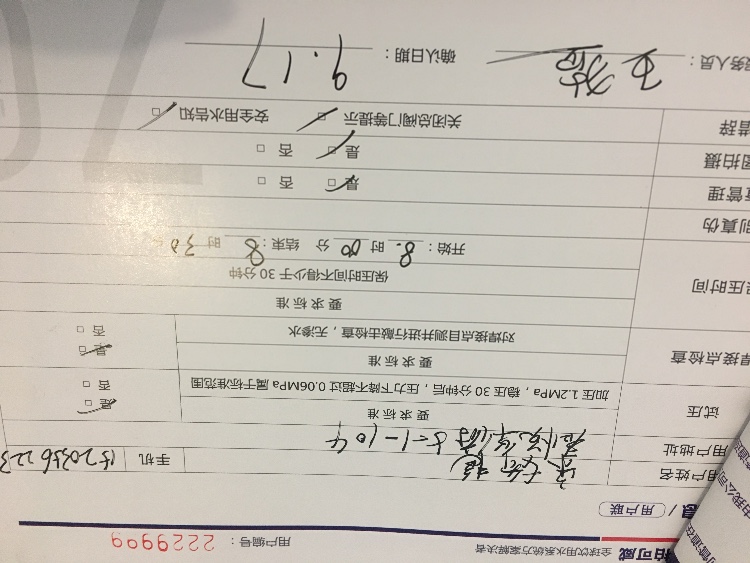 柏可威 全球饮用水系统方案解决者 用户编号：2229999
息 / 用户联
用户姓名 手机
用户地址 5-1-104
试压 要求标准 是 □
加压1.2MPa，稳压30分钟后，压力下降不超过0.06MPa属于标准范围 否 □
焊接点检查 要求标准 是 □
对焊接点目测并进行敲击检查，无渗水 否 □
保压时间 要求标准
保压时间不得少于30分钟
开始：8时00分 结束：8时30
别真伪
查管理 是 □ 否 □
图拍摄 是 □ 否 □
告辞 关闭总阀门等提示 □ 安全用水告知 □
服务人员： 确认日期：9.17